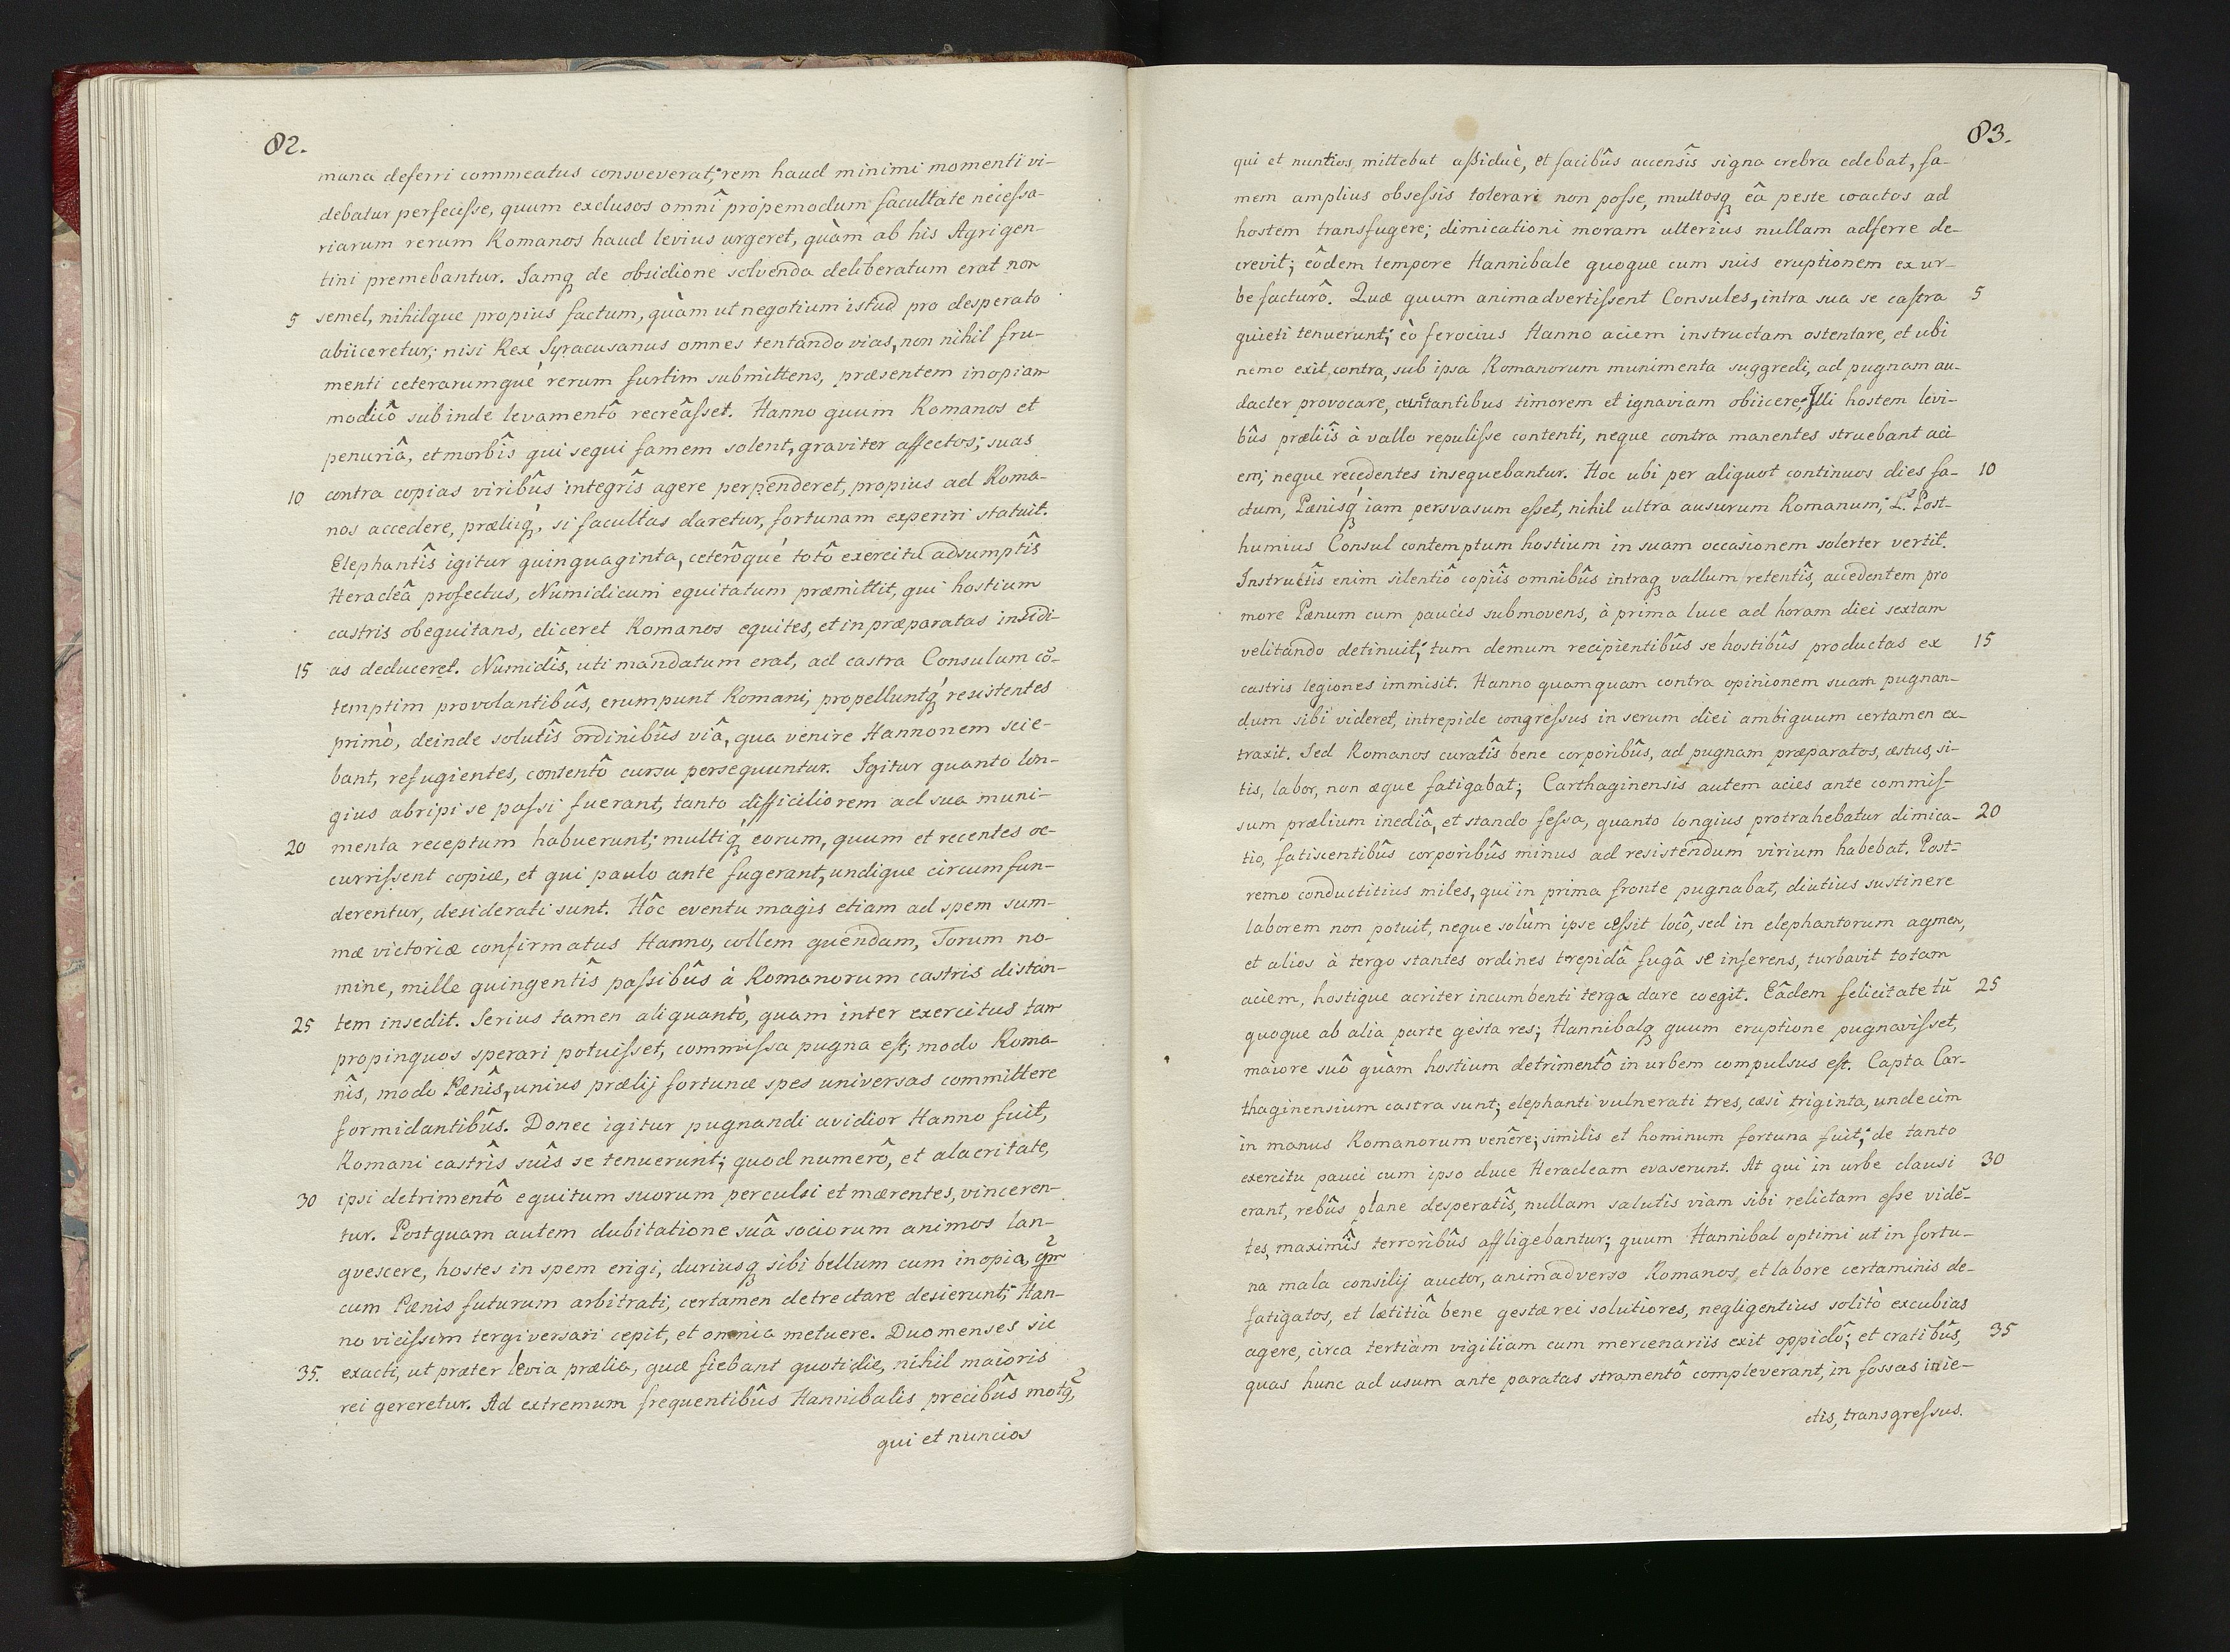 82.
mana deferri commeatus consveverat; rem haud minimi momenti vi-
debatur perfecisse, quum exclusos omnî propemodum facultate necessa-
riarum rerum Romanos haud levius urgeret, quàm ab his Agrigen-
tini premebantur. Iamq; de obsidione solvenda deliberatum erat non
5 semel, nihilque propius factum, quàm ut negotium istud pro desperato
abiiceretur; nisi Rex Syracusanus omnes tentando vias, non nihil fru-
menti ceterarumque rerum furtim submittens, præsentem inopiam
modicô subinde levamentô recreâsset. Hanno quum Romanos et
penuriâ, et morbîs qui segui famem solent, graviter affectos; suas
10 contra copias viribûs integrîs agere perpenderet, propius ad Roma-
nos accedere, præliiq;, si facultas daretur, fortunam experiri statuit.
Elephantîs igitur quinquaginta, ceterôque totô exercitu adsumptîs
Heracleâ profectus, Numidicum equitatum præmittit, qui hostium
castris obequitans, eliceret Romanos equites, et in præparatas insidi-
15 as deduceret. Numidîs, uti mandatum erat, ad castra Consulum cō-
temptim provolantibûs, erumpunt Romani, propelluntq; resistentes
primò, deinde solutîs ordinibûs viâ, qua venire Hannonem scie-
bant, refugientes, contentô cursu persequuntur. Igitur quanto lon-
gius abripi se passi fuerant, tanto difficiliorem ad sua muni-
20 menta receptum habuerunt; multiq; eorum, quum et recentes oc-
currissent copiæ, et qui paulo ante fugerant, undique circumfun-
derentur, desiderati sunt. Hôc eventu magis etiam ad spem sum-
mæ victoriæ confirmatus Hanno, collem quendam, Torum no-
mine, mille quingentîs passibûs à Romanorum castris distan-
25 tem insedit. Serius tamen aliquantò, quam inter exercitus tam
propinquos sperari potuisset, commissa pugna est; modo Roma-
nîs, modo Pænîs, unius prælij fortunæ spes universas committere
formidantibûs. Donec igitur pugnandi avidior Hanno fuit,
Romani castrîs suîs se tenuerunt; quod numerô, et alacritate,
30 ipsi detrimentô equitum suorum perculsi et mærentes, vinceren-
tur. Postquam autem dubitatione suâ sociorum animos lan-
gvescere, hostes in spem erigi, duriusq; sibi bellum cum inopia, qm
cum Pænis futurum arbitrati, certamen detrectare desierunt; Han-
no vicissim tergiversari cepit, et omnia metuere. Duo menses sic
35. exacti, ut præter levia prælia, quæ fiebant quotidie, nihil maioris
rei gereretur. Ad extremum frequentibûs Hannibalis precibûs motq;,
qui et nuncios
83.
qui et nuntios mittebat assiduè, et facibûs accensîs signa crebra edebat, fa-
mem amplius obsessis tolerari non posse, multosq; eâ peste coactos ad
hostem transfugere; dimicationi moram ulterius nullam adferre de-
crevit; eôdem tempore Hannibale quoque cum suis eruptionem ex ur-
be facturô. Quæ quum animadvertissent Consules, intra sua se castra 5
quieti tenuerunt; eò ferocius Hanno aciem instructam ostentare, et ubi
nemo exit contra, sub ipsa Romanorum munimenta suggredi, ad pugnam au-
dacter provocare, cuntantibus timorem et ignaviam obiicere; Illi hostem levi-
bûs præliîs à vallo repulisse contenti, neque contra manentes struebant aci
em; neque recedentes insequebantur. Hoc ubi per aliquot continuos dies fa- 10
ctum, Pænisq; iam persvasum esset, nihil ultra ausurum Romanum; L. Post-
humius Consul contemptum hostium in suam occasionem solerter vertit.
Instructîs enim silentiô copiîs omnibûs intraq; vallum retentîs, accedentem pro
more Pænum cum paucis submovens, à prima luce ad horam diei sextam
velitando detinuit; tum demum recipientibûs se hostibûs productas ex 15
castris legiones immisit. Hanno quamquam contra opinionem suam pugnan-
dum sibi videret, intrepide congressus in serum diei ambiguum certamen ex-
traxit. Sed Romanos curatîs bene corporibûs, ad pugnam præparatos, æstus, si-
tis, labor, non æque fatigabat; Carthaginensis autem acies ante commis-
sum prælium inediâ, et stando fessa, quanto longius protrahebatur dimica- 20
tio, fatiscentibûs corporibûs minus ad resistendum virium habebat. Post=
remo conductitius miles, qui in prima fronte pugnabat, diutius sustinere
laborem non potuit, neque solùm ipse cessit locô, sed in elephantorum agmen,
et alios à tergo stantes ordines trepidâ fugâ se inserens, turbavit totam
aciem, hostique acriter incumbenti terga dare coegit. Eâdem felicitate tū 25
quoque ab alia parte gesta res; Hannibalq; quum eruptione pugnavisset,
maiore suô quàm hostium detrimentô in urbem compulsus est. Capta Car-
thaginensium castra sunt; elephanti vulnerati tres, cæsi triginta, undecim
in manus Romanorum venêre; similis et hominum fortuna fuit; de tanto
exercitu pauci cum ipso duce Heracleam evaserunt. At qui in urbe clausi 30
erant, rebûs plane desperatîs, nullam salutis viam sibi relictam esse vidē-
tes, maximîs terroribûs affligebantur; quum Hannibal optimi ut in fortu-
na mala consilij auctor, animadverso Romanos, et labore certaminis de-
fatigatos, et lætitiâ bene gestæ rei solutiores, negligentius solitò excubias
agere, circa tertiam vigiliam cum mercenariis exit oppidô; et cratibûs, 35
quas hunc ad usum ante paratas stramentô compleverant, in fossas inie-
ctis, transgressus.